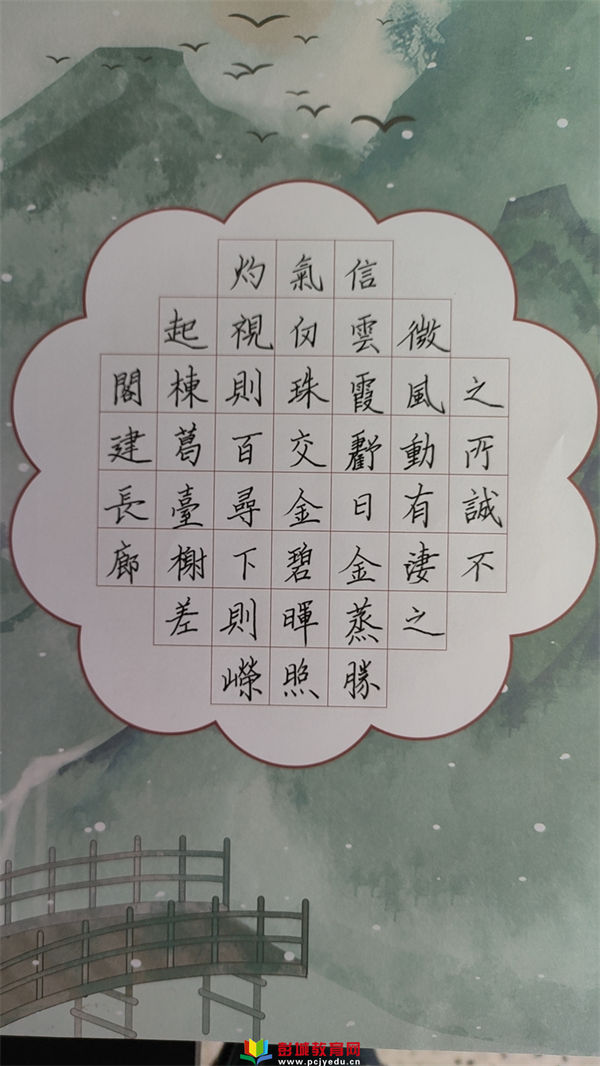 閣建長廊
起棟葛臺榭差
灼視則百尋下則嶸
氣仞珠交金碧暉照
信雲霞虧日金蒸勝
微風動有淒之
之所誠不
彭城教育网
www.pcjyedu.cn